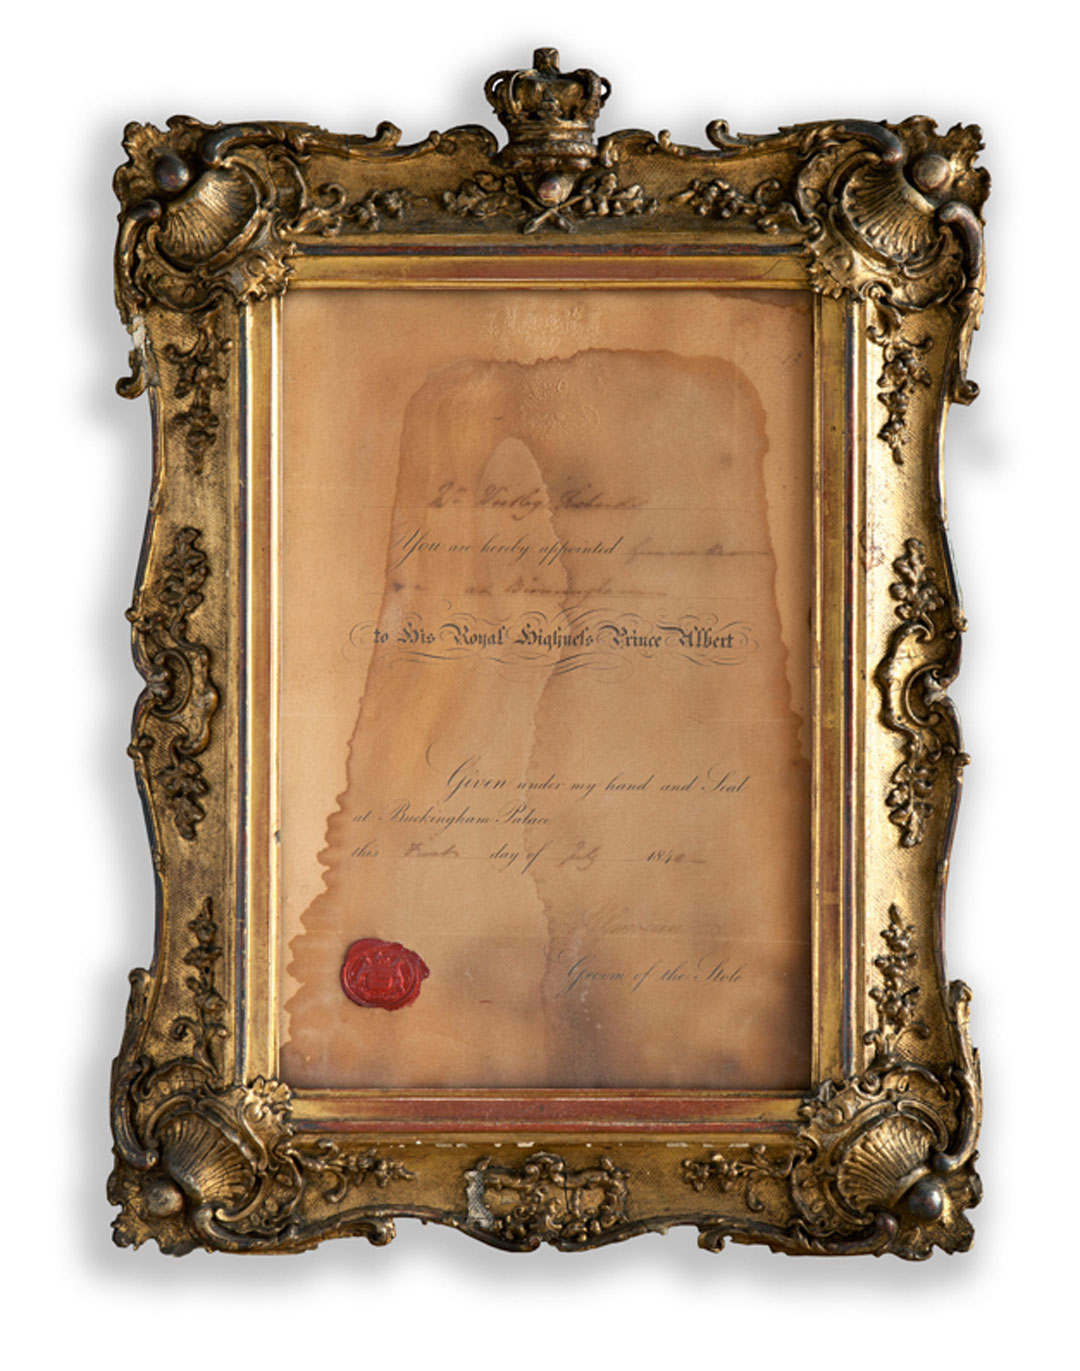 Westley Richards
You are hereby appointed Gunmaker
at Birmingham
to His Royal Highneſs Prince Albert
Given under my hand and Seal
at Buckingham Palace
this First day of July 1840
Groom of the Stole